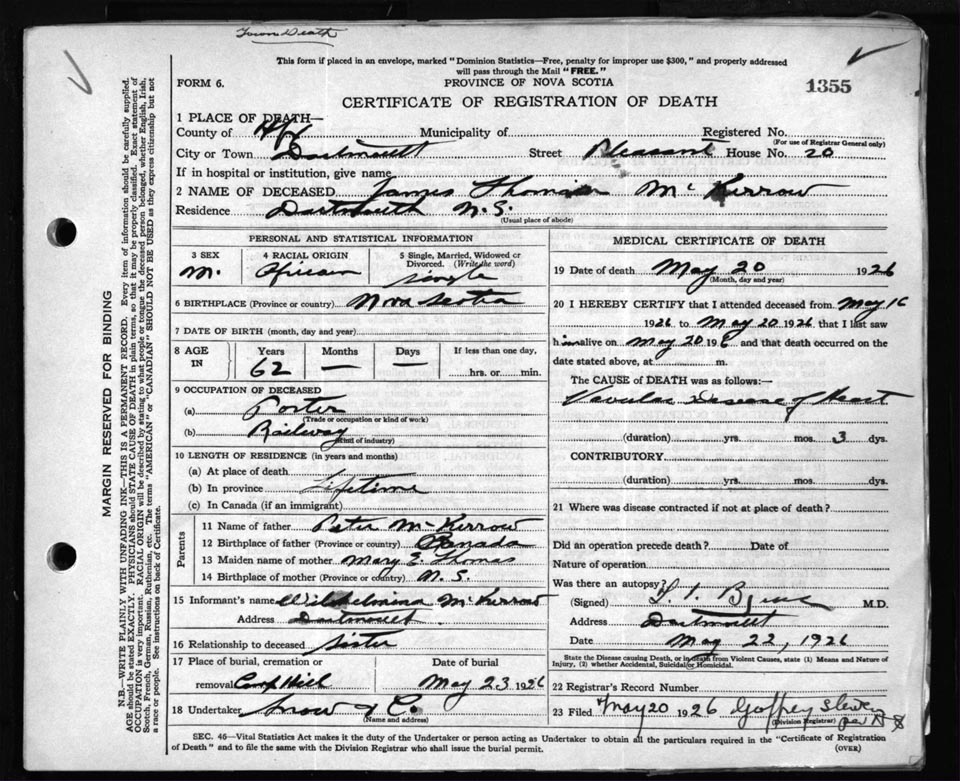 Town Death
This form if placed in an envelope, marked "Dominion Statistics—Free, penalty for improper use $300," and properly addressed
will pass through the Mail "FREE."
FORM 6.
PROVINCE OF NOVA SCOTIA
1355
CERTIFICATE OF REGISTRATION OF DEATH
1 PLACE OF DEATH—
County of Hfx Municipality of Registered No.
(For use of Registrar General only)
City or Town Dartmouth Street Pleasant House No. 20
If in hospital or institution, give name
2 NAME OF DECEASED James Thomas McKerrow
Residence Dartmouth N.S.
(Usual place of abode)
PERSONAL AND STATISTICAL INFORMATION
3 SEX 4 RACIAL ORIGIN 5 Single, Married, Widowed or
Divorced. (Write the word)
M. African single
6 BIRTHPLACE (Province or country) Nova Scotia
7 DATE OF BIRTH (month, day and year)
8 AGE IN Years Months Days If less than one day,
62 — — hrs. or min.
9 OCCUPATION OF DECEASED
(a) Porter
(Trade or occupation or kind of work)
(b) Railway
(Kind of industry)
10 LENGTH OF RESIDENCE (in years and months)
(a) At place of death
(b) In province Lifetime
(c) In Canada (if an immigrant)
Parents
11 Name of father Peter McKerrow
12 Birthplace of father (Province or country) Canada
13 Maiden name of mother Mary E. Thomas
14 Birthplace of mother (Province or country) N.S.
15 Informant's name Wilhelmina McKerrow
Address Dartmouth.
16 Relationship to deceased Sister
17 Place of burial, cremation or Date of burial
removal Camp Hill May 23 1926
18 Undertaker Snow & Co.
(Name and address)
MEDICAL CERTIFICATE OF DEATH
19 Date of death May 20 1926
(Month, day and year)
20 I HEREBY CERTIFY that I attended deceased from May 16
1926 to May 20 1926, that I last saw
him alive on May 20 1926 and that death occurred on the
date stated above, at m.
The CAUSE of DEATH was as follows:—
Valvular Disease of Heart
(duration) yrs. mos. 3 dys.
CONTRIBUTORY
(duration) yrs. mos. dys.
21 Where was disease contracted if not at place of death?
Did an operation precede death? Date of
Nature of operation
Was there an autopsy?
(Signed) M.D.
Address Dartmouth
Date May 22, 1926
State the Disease causing Death, or in death from Violent Causes, state (1) Means and Nature of
Injury, (2) whether Accidental, Suicidal or Homicidal.
22 Registrar's Record Number
23 Filed May 20 1926 Godfrey
(Division Registrar)
SEC. 46—Vital Statistics Act makes it the duty of the Undertaker or person acting as Undertaker to obtain all the particulars required in the "Certificate of Registration
of Death" and to file the same with the Division Registrar who shall issue the burial permit.
(OVER)
MARGIN RESERVED FOR BINDING
N.B.—WRITE PLAINLY WITH UNFADING INK—THIS IS A PERMANENT RECORD. Every item of information should be carefully supplied.
AGE should be stated EXACTLY. PHYSICIANS should STATE CAUSE OF DEATH in plain terms, so that it may be properly classified. Exact statement of
OCCUPATION is very important. RACIAL ORIGIN will be described by stating to what people or tongue the deceased person belonged, whether English, Irish,
Scotch, French, German, Russian, Ruthenian, etc. The terms "AMERICAN" or "CANADIAN" SHOULD NOT BE USED as they express citizenship but not
a race or people. See instructions on back of Certificate.